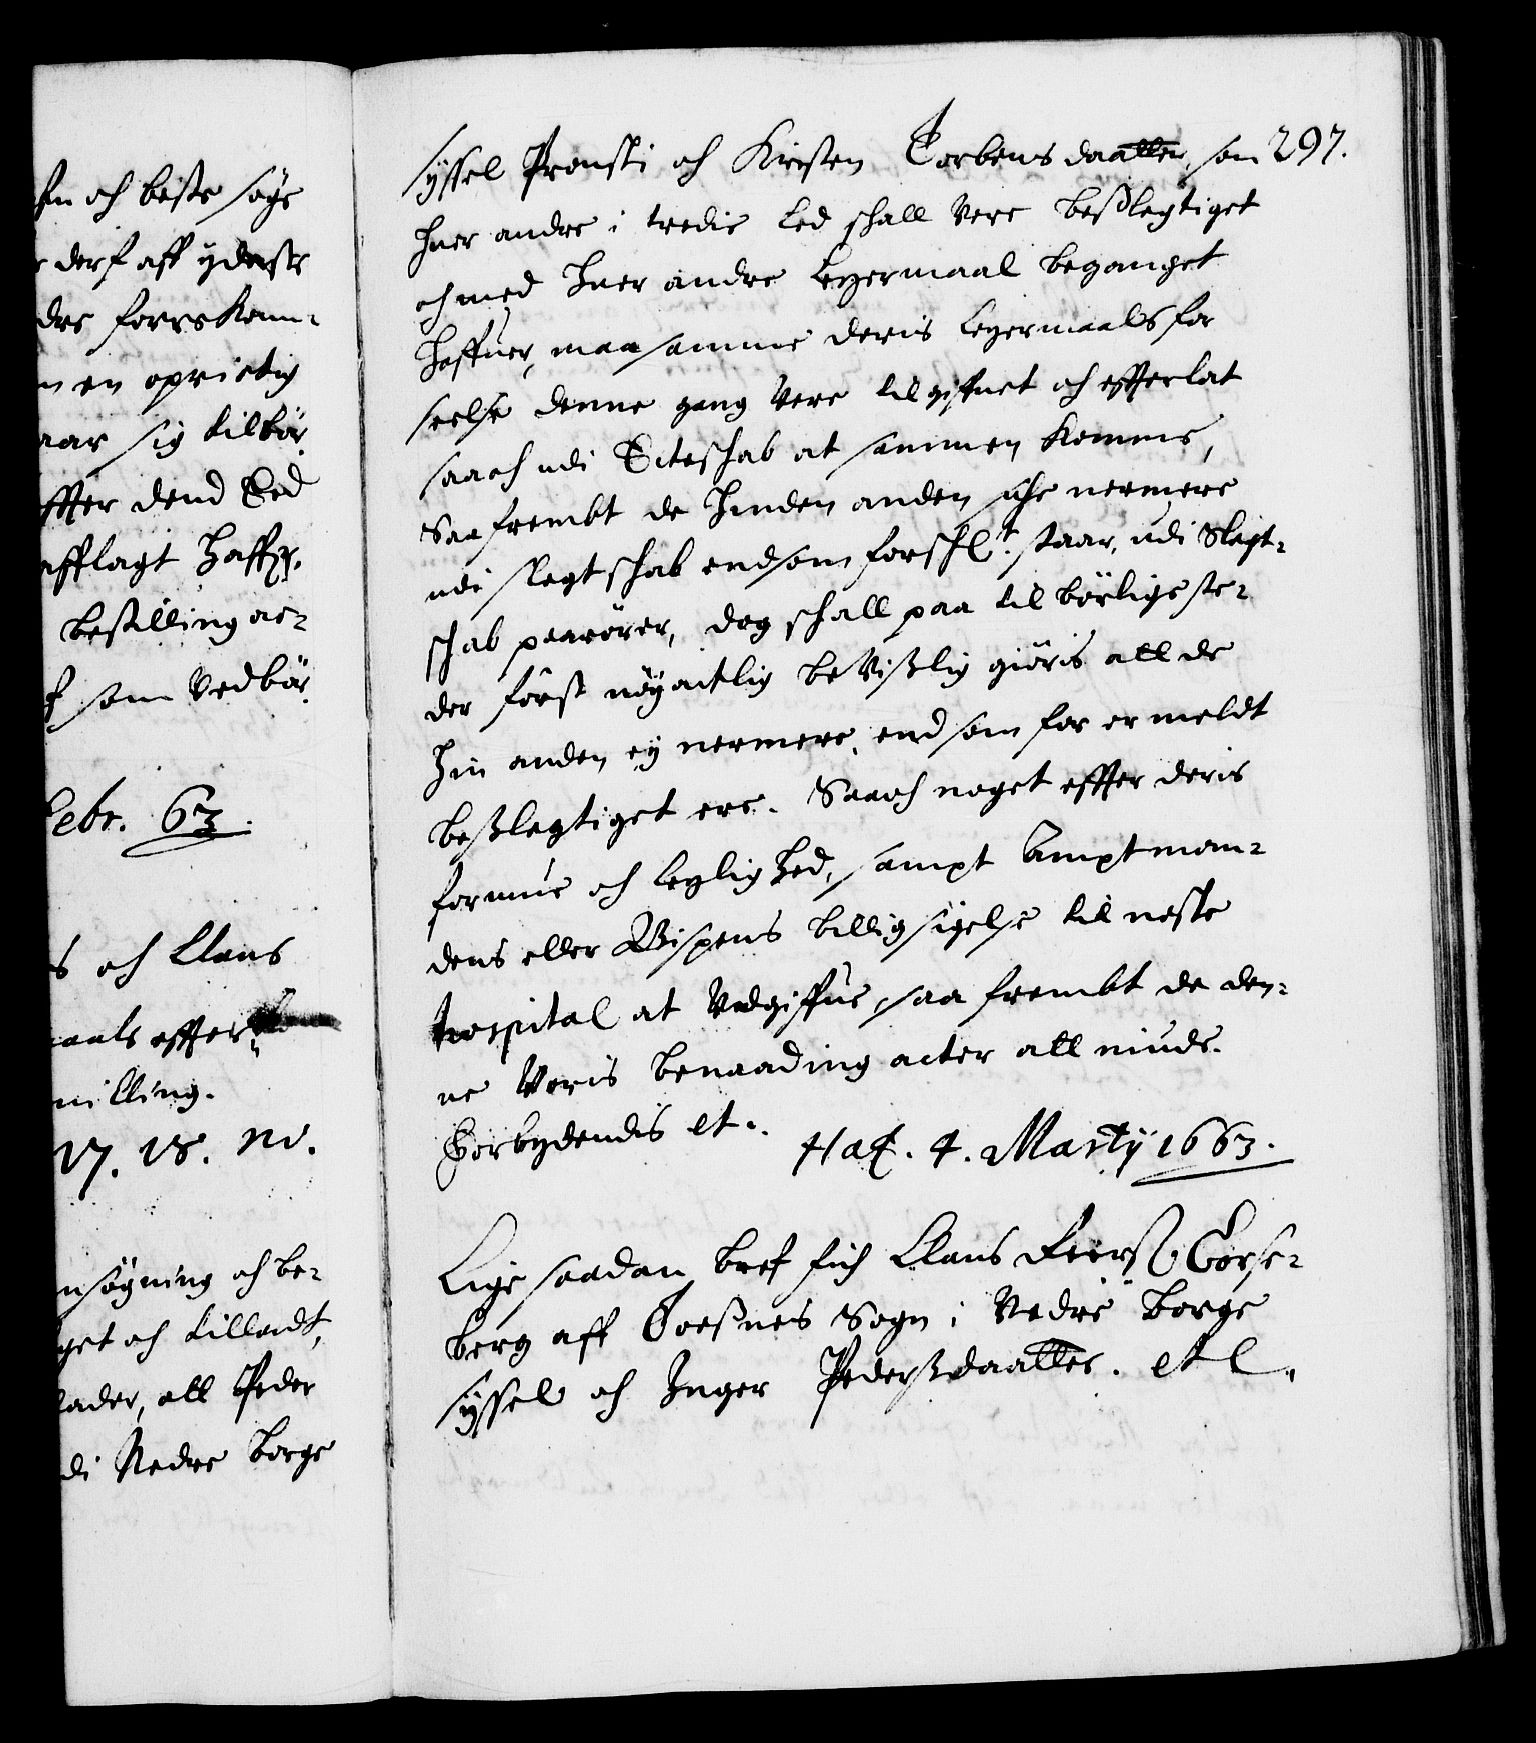 fn och beste søge
derf aff yderste
dre forrekom-
n en oprictig
aar sig tilbør
effter dend Eed
afflagt haffr.
bestilling ac-
f som Vedbør.
Febr. 63.
s och Claus
maals effter
milling.
17. 18. No.
nsøgning och be-
get och tilladt,
lader, att Peder
di Nedre Borge
syssel Prousti och Kirsten Torbensdaatter, som 297.
huer andre i tredie Led schall Vere beslegtiget
och med huer andre Leyermaal beganget
haffuer, maa samme deris Leyermaals for
seelse denne gang Vere tilgifuet och efterlat
saa och udi Ecteschab at sammen komme,
Saafrembt de hinden anden iche nermere
udi slegtschab end som forschl.t staar, udi Slegt-
schab paarører, dog schall paa tilbørlige ste-
der først nøyactlig beVislig giøris att de
hin anden ey nermere, end som for er meldt
beslegtiget ere. Saa och noget effter deris
formue och leylighed, sampt Amptman-
dens eller Bispens billigsigelse til neste
hospital at Vdgiffue, saa frembt de den-
ne Voris benaading acter att niude.
Forbydendis et.
Haf. 4. Marty 1663.
Lige saadan bref fich Claus Feerss Torse-
berg aff Toesnes Sogn i Nedre Borge
syssel och Inger Pedersdaatter. et l.